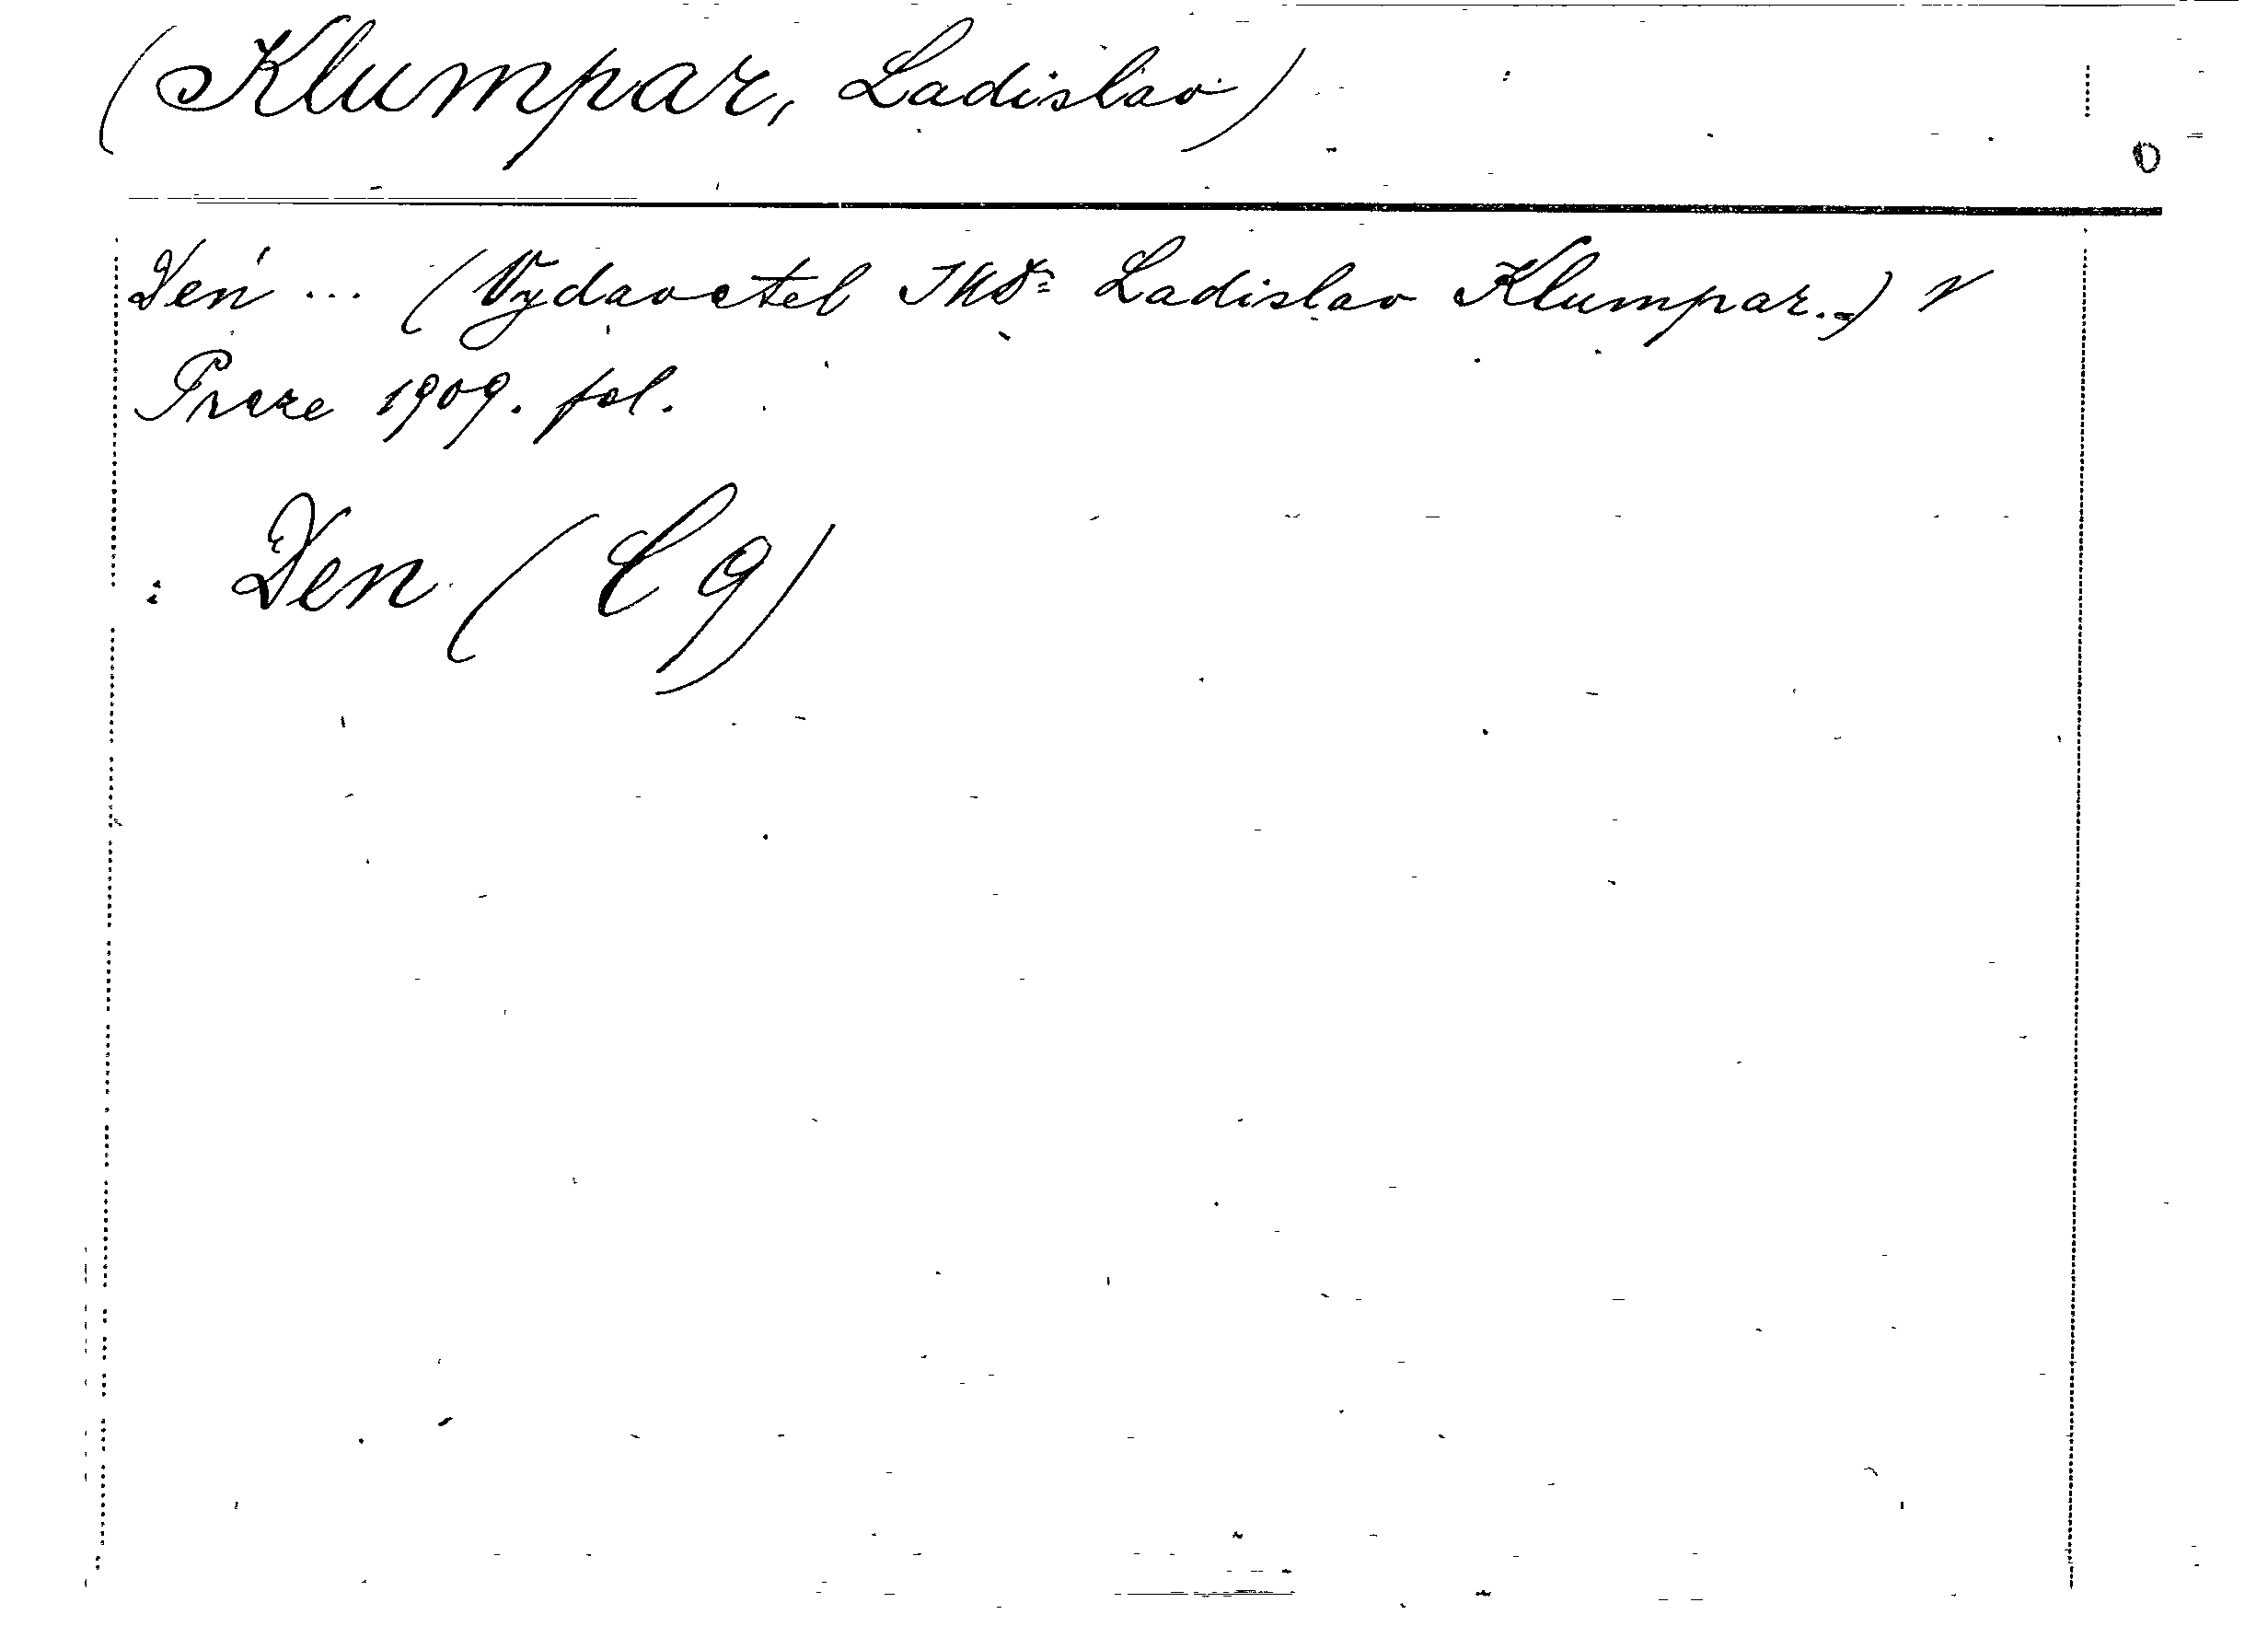 (Klumpar, Ladislav)
Den ... (Vydavatel JUDr. Ladislav Klumpar.-) V
Praze 1909. fol.
: Den (C 9)